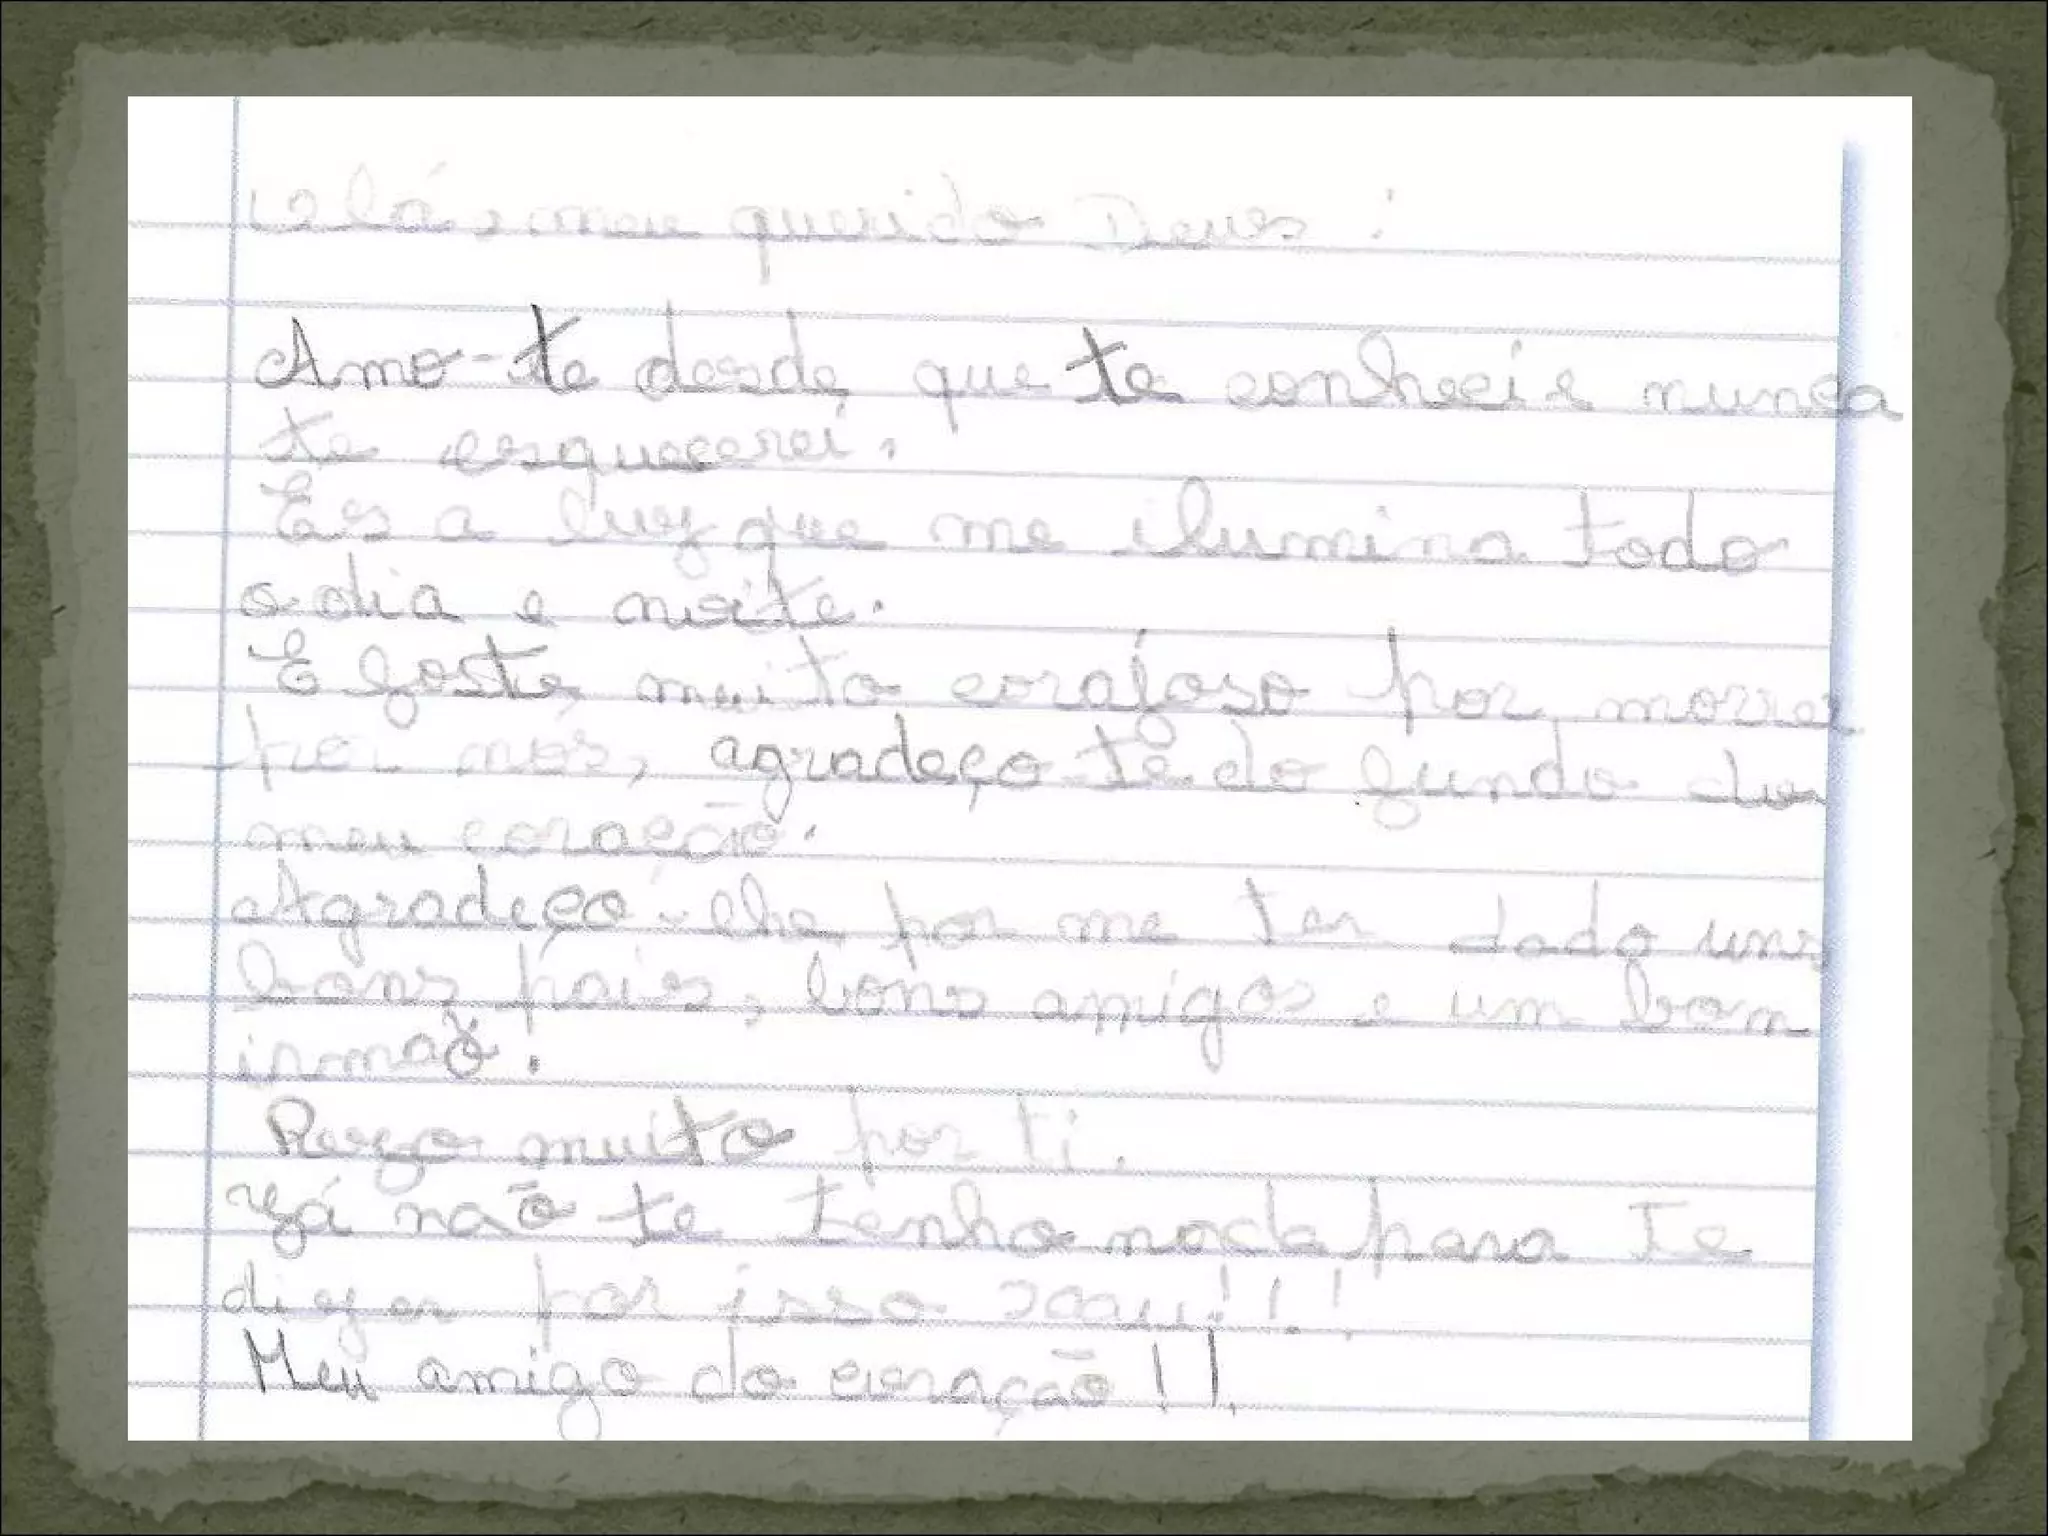 Olá, meu querido Deus:
Amo-te desde que te conheci e nunca
te esquecerei.
Es a luz que me ilumina todo
o dia e noite.
E foste muito corajoso por morrer
por nós, agradeço-te do fundo do
meu coração.
Agradeço-lhe por me ter dado uns
bons pais, bons amigos e um bom
irmão.
Rezo muito por ti.
Já não te tenho nada para te
dizer por isso xau!!!
Meu amigo do coração!!.